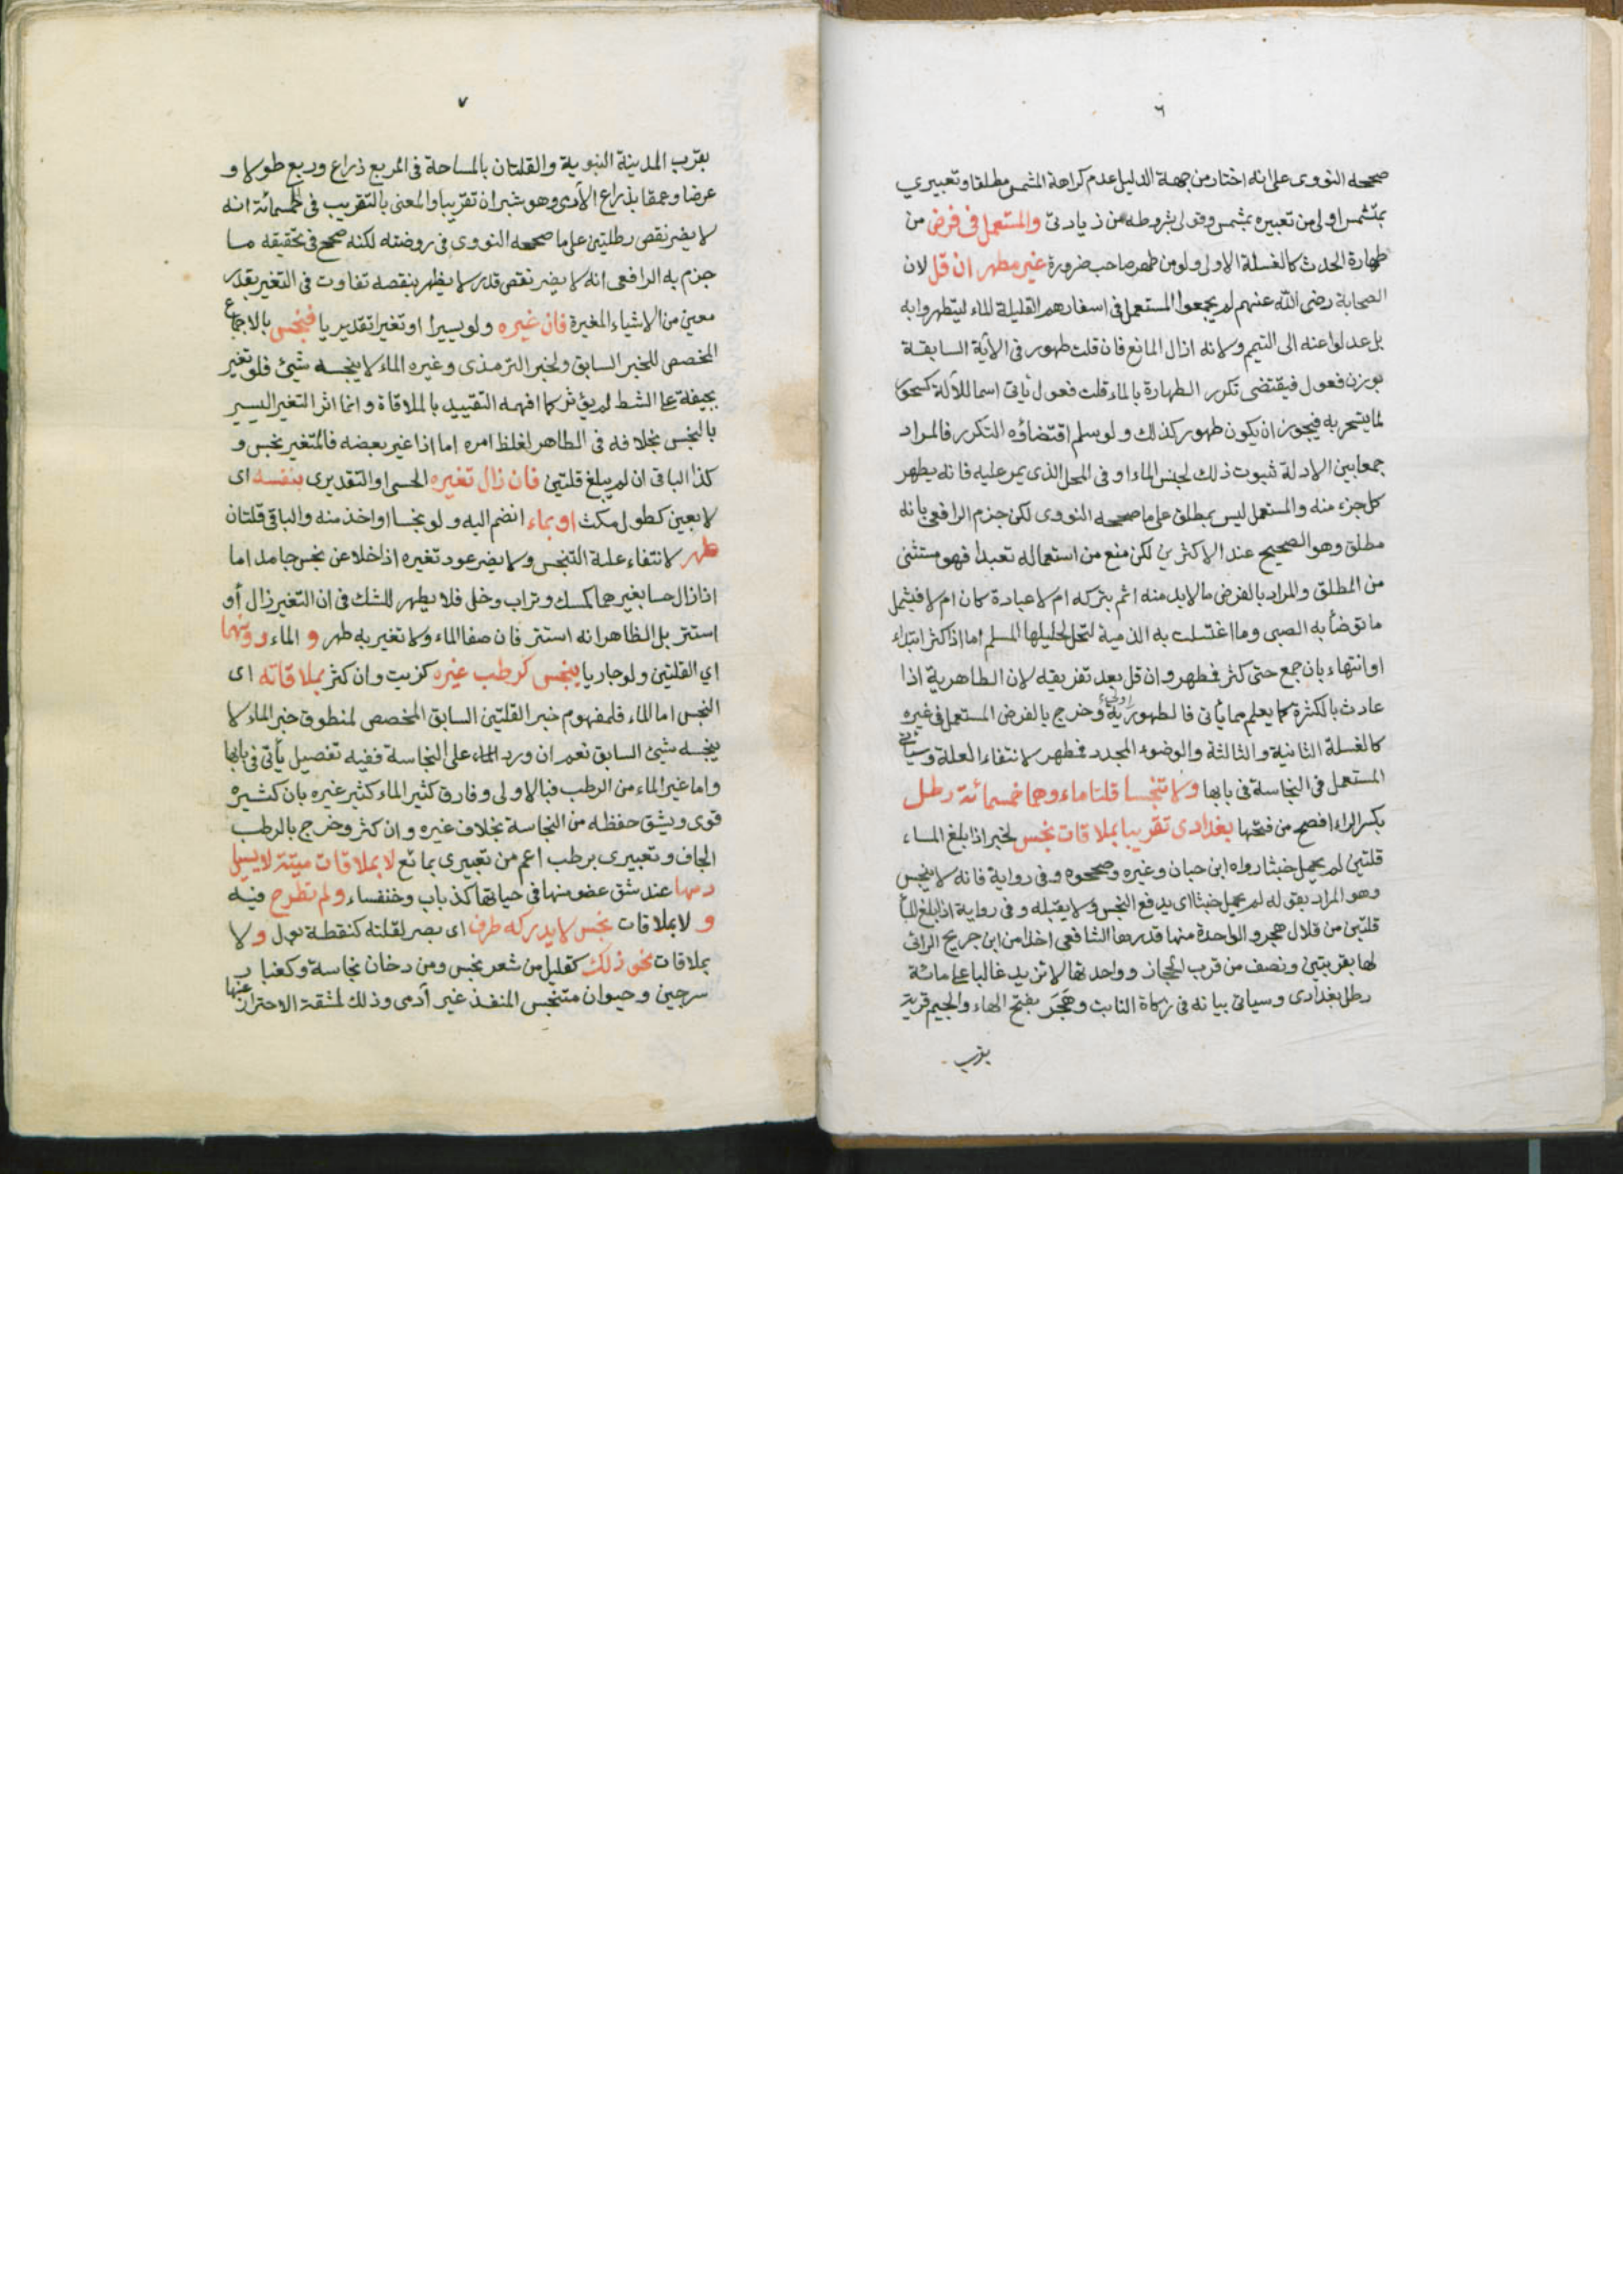 ٦
صححه النووى على انه اختار من جهة الدليل عدم كراهة المشمس مطلقا وتعبيرى
بمتشمس اولى من تعبيره بمشمس وقولى بشروطه من زيادتى والمستعمل فى فرض من
طهارة الحدث كالغسلة الاولى ولو من طهر صاحب ضرورة غير مطهر ان قل لان
الصحابة رضى الله عنهم لم يجمعوا المستعمل فى اسفارهم القليلة الماء ليتطهروا به
بل عدلوا عنه الى التيمم ولانه ازال المانع فان قلت طهور فى الآية السابقة
بوزن فعول فيقتضى تكرر الطهارة بالماء قلت فعول يأتى اسما للآلة كسحور
لما يتسحر به فيجوز ان يكون طهور كذلك ولو سلم اقتضاؤه التكرر فالمراد
جمعا بين الادلة ثبوت ذلك لجنس الماء او فى المحل الذى يمر عليه فانه يطهر
كل جزء منه والمستعمل ليس بمطلق على ما صححه النووى لكن جزم الرافعى بانه
مطلق وهو الصحيح عند الاكثرين لكن منع من استعماله تعبدا فهو مستثنى
من المطلق والمراد بالفرض ما لابد منه اثم بتركه ام لا عبادة كان ام لا فيشمل
ما توضأ به الصبى وما اغتسلت به الذمية لتحل لحليلها المسلم اما اذا كثر ابتداء
او انتهاء بان جمع حتى كثر فطهر وان قل بعد تفريقه لان الطاهرية اذا
عادت بالكثرة كما يعلم مما يأتى فالطهورية اولى وخرج بالفرض المستعمل فى غيره
كالغسلة الثانية والثالثة والوضوء المجدد فطهر لانتفاء العلة وسيأتى
المستعمل فى النجاسة فى بابها ولا تنجسا قلتا ماء وهما خمسمائة رطل
بكسر الراء افصح من فتحها بغدادى تقريبا بملاقات نجس لخبر اذا بلغ الماء
قلتين لم يحمل خبثا رواه ابن حبان وغيره وصححوه وفى رواية فانه لا ينجس
وهو المراد بقوله لم يحمل خبثا اى يدفع النجس ولا يقبله وفى رواية اذا بلغ الماء
قلتين من قلال هجر والواحدة منها قدرها الشافعى اخذا من ابن جريج الرائى
لها بقربتين ونصف من قرب الحجاز وواحدتها لا تزيد غالبا على مائة
رطل بغدادى وسياتى بيانه فى زكاة النابت وهجر بفتح الهاء والجيم قرية
بقرب
٧
بقرب المدينة النبوية والقلتان بالمساحة فى المربع ذراع وربع طولا و
عرضا وعمقا بذراع الآدمى وهو شبران تقريبا والمعنى بالتقريب فى الخمسمائة انه
لا يضر نقص رطلين على ما صححه النووى فى روضته لكنه صحح فى تحقيقه ما
جزم به الرافعى انه لا يضر نقص قدر لا يظهر بنقصه تفاوت فى التغير بقدر
معين من الاشياء المغيرة فان غيره ولو يسيرا او تغيرا تقديريا فنجس بالاجماع
المخصص للخبر السابق ولخبر الترمذى وغيره الماء لا ينجسه شيئ فلو تغير
بجيفة على الشط لم يؤثر كما افهمه التقييد بالملاقاة وانما اثر التغير اليسير
بالنجس بخلافه فى الطاهر لغلظ امره اما اذا غير بعضه فالمتغير نجس و
كذا الباقى ان لم يبلغ قلتين فان زال تغيره الحسى او التقديرى بنفسه اى
لا بعين كطول مكث او بماء انضم اليه ولو نجسا او اخذ منه والباقى قلتان
طهر لانتفاء علة التنجس ولا يضر عود تغيره اذا خلا عن نجس جامد اما
اذا زال حسا بغيرهما كمسك وتراب وخل فلا يطهر للشك فى ان التغير زال أو
استتر بل الظاهر انه استتر فان صفا الماء ولا تغير به طهر و الماء دونهما
اي القلتين ولو جاريا ينجس كرطب غيره كزيت وان كثر بملاقاته اى
النجس اما الماء فلمفهوم خبر القلتين السابق المخصص لمنطوق خبر الماء لا
ينجسه شيئ السابق نعم ان ورد الماء على النجاسة ففيه تفصيل يأتى فى بابها
واما غير الماء من الرطب فبالاولى وفارق كثير الماء كثير غيره بان كثيره
قوى ويشق حفظه من النجاسة بخلاف غيره وان كثر وخرج بالرطب
الجاف وتعبيرى برطب اعم من تعبيرى بمائع لا بملاقات ميتة لا يسيل
دمها عند شق عضو منها فى حياتها كذباب وخنفساء ولم تطرح فيه
و لا بملاقات نجس لا يدركه طرف اى بصر لقلته كنقطة بول و لا
بملاقات نحو ذلك كقليل من شعر نجس ومن دخان نجاسة وكغبار
سرجين وحيوان متنجس المنفذ غير آدمى وذلك لمشقة الاحتراز عنها